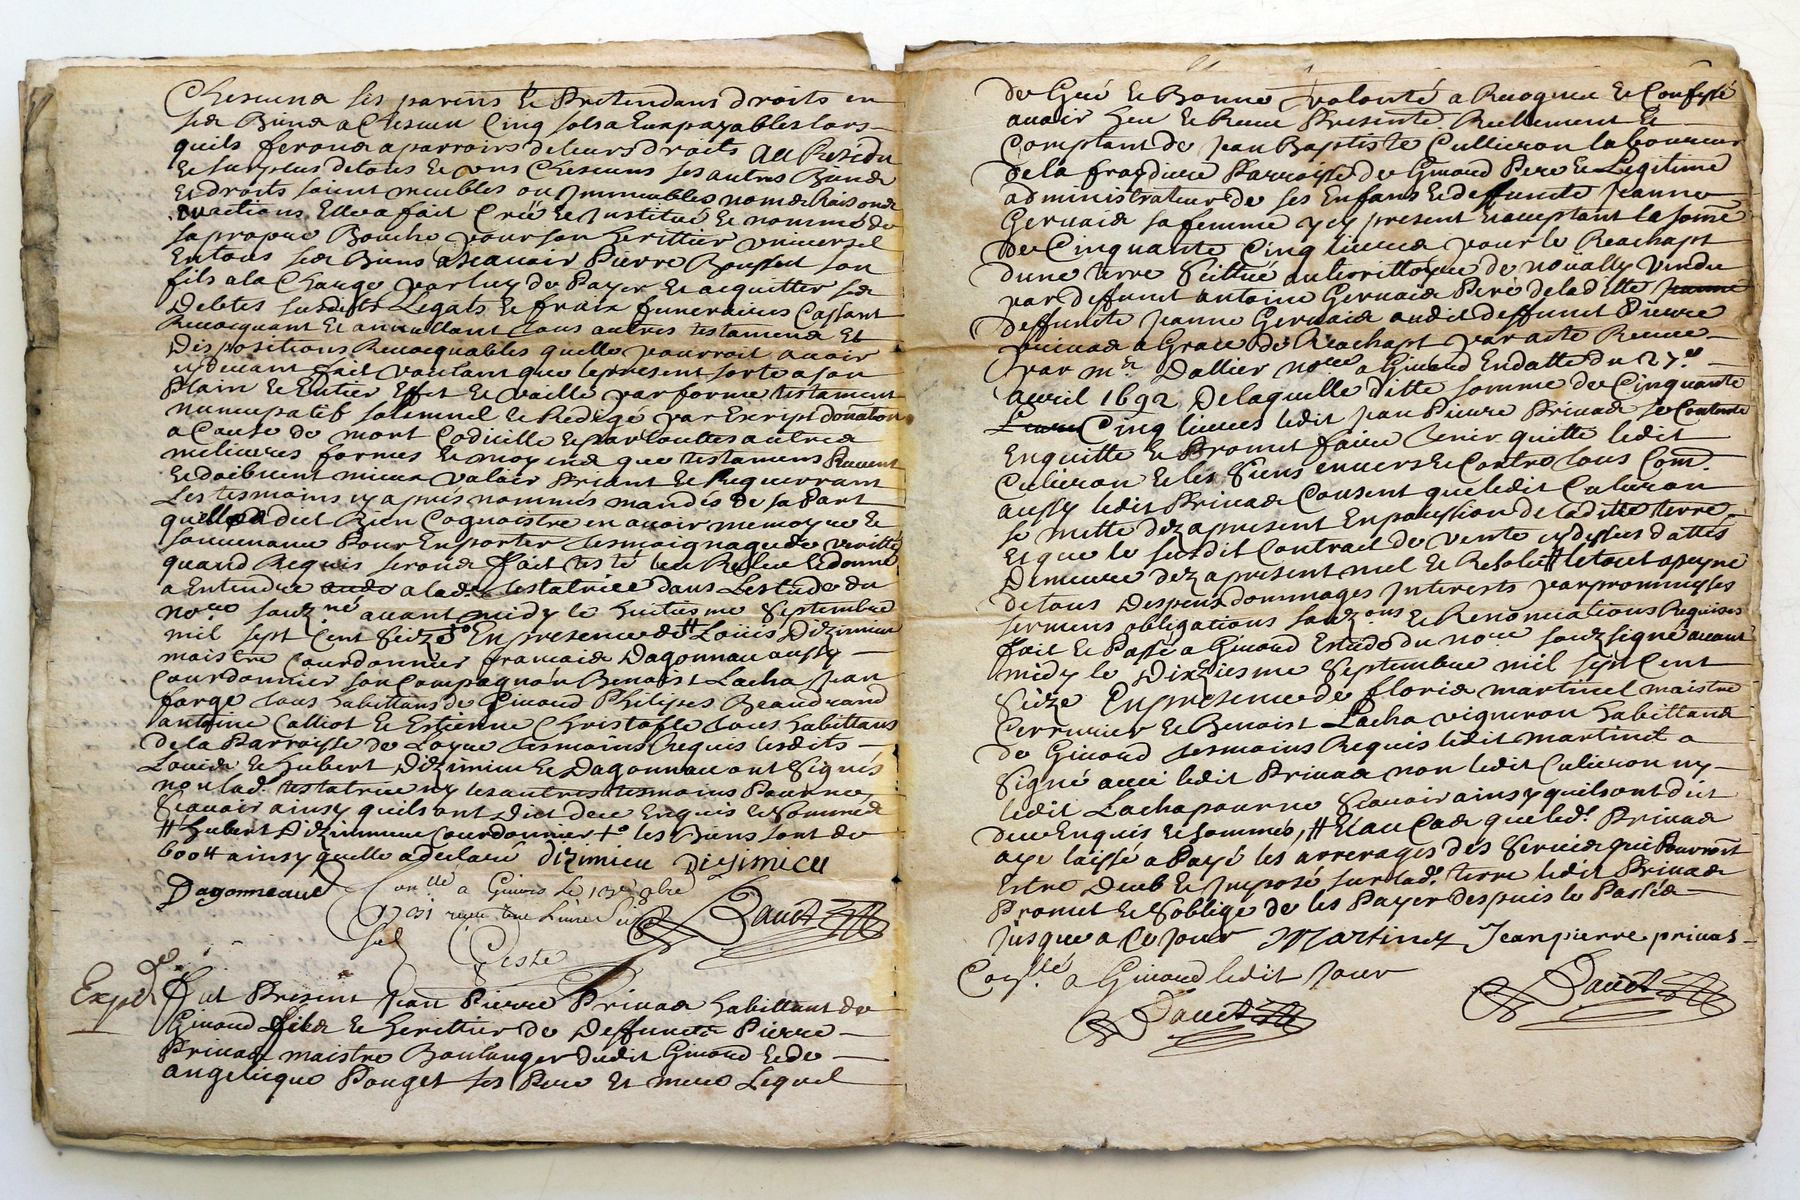 Chescuns ses parens et Pretendans droits en
ses Biens a Chescun Cinq sols a Eux payables lors
quils feront apparroir de leurs droits Au Residu
et surplus de tous et uns Chescuns ses autres Biens
et droits soient meubles ou Immeubles noms Raisons
et actions Elle a fait Créé et Institué et nommé de
sa propre Bouche pour son herittier universel
En tous ses Biens a Scavoir Pierre son
fils a la Charge par luy de Payer et acquitter ses
Debtes susdits Legats et fraix funeraires Cassant
Revocquant Et annullant tous autres testamens Et
Dispositions Revocquables quelle pourroit avoir
cydevant fait voulant que le present sorte a son
Plain et Entier Effet et vaille par forme testament
nuncupatif solemnel et Redigé par Escript donation
a Cause de mort Codicille et par touttes autres
melieures formes et moyens que testamens Peuvent
et doibvent mieux valoir Priant et Requerrant
Les tesmoins cy apres nommés mandés de sa Part
quelle a dict Bien Cognoistre en avoir memoyre et
souvenance Pour En porter tesmoignage de verité
quand Requis seront fait testé leu Releu et donné
a Entendre a lad. testatrice dans Lestude du
no.re souz.né avant midy le huitiesme Septembre
mil sept Cent Seize En presence de # Loüis Dizimieu
maistre Courdonnier francois Dagonnau aussy
Courdonnier son Compagnon Benoist Lacha Jean
farge tous habittans de Givord Philipes Beaudrand
antoine Calliot et Estienne Christofle tous habittans
de la Parroisse de Loyre tesmoins Requis lesdits
Louis et hubert Dizimieu et Dagonnau ont Signés
non lad. testatrice ny les autres tesmoins Pour ne
Scavoir ainsy quils ont Dict de ce Enquis et Sommés
# hubert Dizimieu Courdonnier + les Biens sont de
600 # ainsy quelle a declaré Dizimieu DIZIMIEU
Dagonneaud Con.llé a Givors Le 13e 8bre
1731 receu une Livre
Davet
Geste
Expéd. Fut Present Jean Pierre Privas habittant de
Givord fils et herittier de Deffuncts Pierre
Privas maistre Boulanger dudit Givord et de
angelicque Pouget ses Pere et mere Lequel
de Gré et Bonne volonté a Recognu et Confessé
avoir heu et Receu Presente Reelement et
Comptant de Jean Baptiste Cullieron laboureur
de la fraydiere Parroisse de Givord Pere et Legitime
administrateur de ses Enfans et deffuncte Jeanne
Gervais sa femme y cy present et acceptant la some
de Cinquante Cinq livres pour le Reachapt
dune terre Scittué au territtoyre de noüally vendu
par deffunct antoine Gervais Pere de la ditte Jeanne
deffuncte Jeanne Gervais audit deffunct Pierre
privas a Grace de Reachapt par acte Receu
par m.e Dallier no.re a Givord En datte du 27e
avril 1692 De laquelle ditte somme de Cinquante
Livres Cinq livres ledit Jean Pierre Privas se Contente
En quitte et Promet faire tenir quitte ledit
Culieron et les Siens envers et Contre tous Com.
aussy ledit Privas Consent que ledit Culieron
se mette dez a present En possession de laditte terre
et que le susdit Contract de vente cy dessus datté
Demeure dez a present nul et Resolu # le tout a peyne
de tous Despens dommages Interests par prommesses
sermens obligations souz.ons et Renonciations Requises
fait et Passé a Givord Estude du no.re souz signé avant
midy le Dixiesme Septembre mil sept Cent
Seize En presence de floris martinet maistre
Cerrurier et Benoist Lacha vigneron habittans
de Givord tesmoins Requis ledit martinet a
Signé avec ledit Privas non ledit Culieron ny
ledit Lacha pour ne Scavoir ainsy quils ont dict
de ce Enquis et Sommés, # Et au Cas que led. Privas
aye laissé a Payé les arrerages des Servis qui Pourroit
Estre Deub et Imposé sur lad. terre ledit Privas
Promet et S'oblige de les Payer despuis le Passés
Jusque a ce Jour Martinet Jean pierre privas
Con.llé a Givord ledit Jour
Davet
Davet